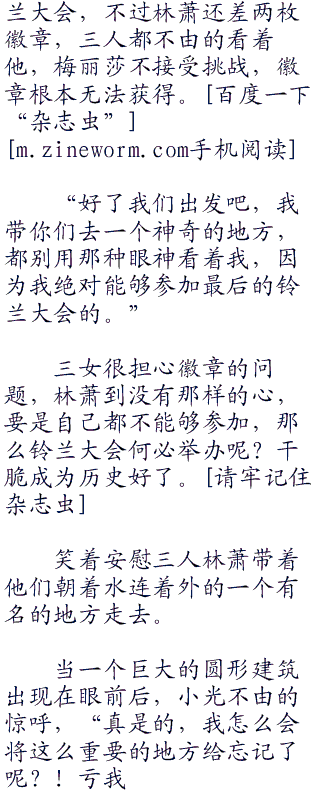 兰大会，不过林萧还差两枚
徽章，三人都不由的看着
他，梅丽莎不接受挑战，徽
章根本无法获得。[百度一下
“杂志虫”]
[m.zineworm.com手机阅读]
“好了我们出发吧，我
带你们去一个神奇的地方，
都别用那种眼神看着我，因
为我绝对能够参加最后的铃
兰大会的。”
三女很担心徽章的问
题，林萧到没有那样的心，
要是自己都不能够参加，那
么铃兰大会何必举办呢？干
脆成为历史好了。[请牢记住
杂志虫]
笑着安慰三人林萧带着
他们朝着水连着外的一个有
名的地方走去。
当一个巨大的圆形建筑
出现在眼前后，小光不由的
惊呼，“真是的，我怎么会
将这么重要的地方给忘记了
呢？！亏我